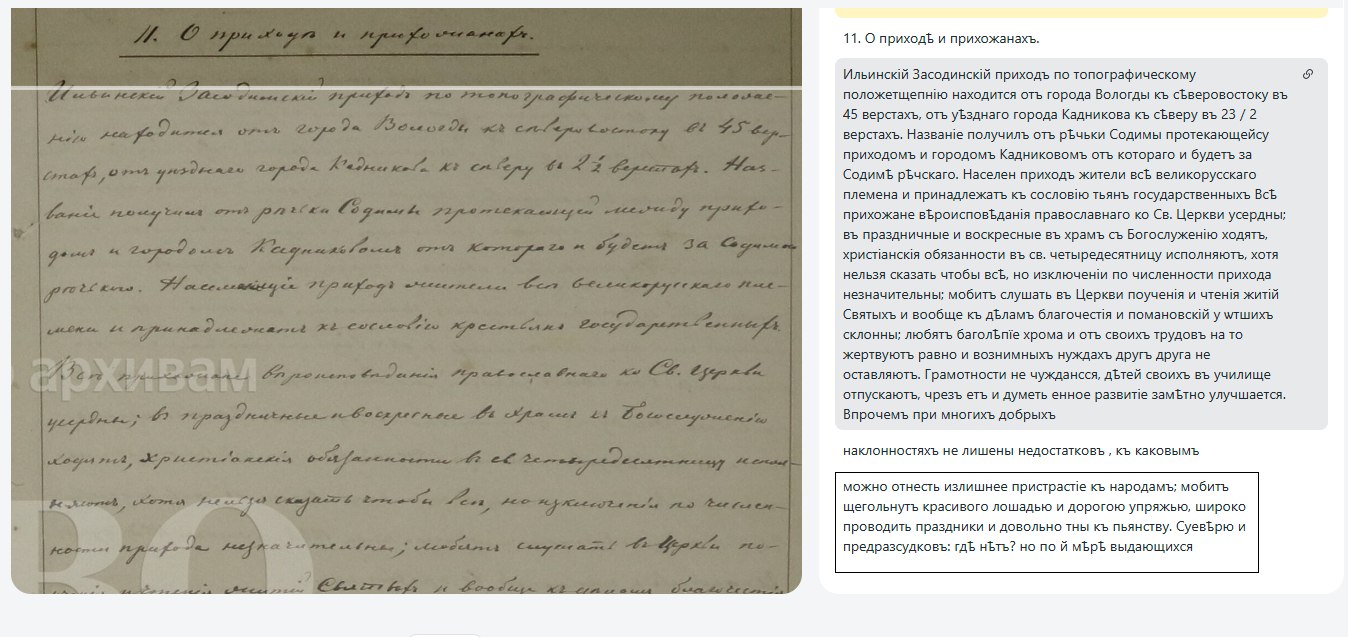 11. О приходѣ и прихожанахъ.
Ильинскій Засодимскій приходъ по топографическому положе-
нію находится отъ города Вологды къ сѣверовостоку въ 45 вер-
стахъ, отъ уѣзднаго города Кадникова къ сѣверу въ 2½ верстахъ. Наз-
ваніе получилъ отъ рѣчки Содимы протекающей между прихо-
домъ и городомъ Кадниковомъ отъ котораго и будетъ за Содимою
рѣчкою. Населяющіе приходъ жители всѣ великорусскаго пле-
мени и принадлежатъ къ сословію крестьянъ государственныхъ.
Всѣ прихожане вѣроисповѣданія православнаго ко Св. Церкви
усердны; въ праздничные и воскресные въ храмъ къ Богослуженію
ходятъ, христіанскія обязанности въ св. четыредесятницу испол-
няютъ, хотя нельзя сказать чтобы всѣ, но изключенія по числен-
ности прихода незначительны; любятъ слушать въ Церкви по-
ученія и чтенія житій Святыхъ и вообще къ дѣламъ благочестія
архивам
ВО
11. О приходѣ и прихожанахъ.
Ильинскій Засодинскій приходъ по топографическому
положетщепнію находится отъ города Вологды къ сѣверовостоку въ
45 верстахъ, отъ уѣзднаго города Кадникова къ сѣверу въ 23 / 2
верстахъ. Названіе получилъ отъ рѣчьки Содимы протекающейсу
приходомъ и городомъ Кадниковомъ отъ котораго и будетъ за
Содимѣ рѣчскаго. Населен приходъ жители всѣ великорусскаго
племена и принадлежатъ къ сословію тьянъ государственныхъ Всѣ
прихожане вѣроисповѣданія православнаго ко Св. Церкви усердны;
въ праздничные и воскресные въ храмъ съ Богослуженію ходятъ,
христіанскія обязанности въ св. четыредесятницу исполняютъ, хотя
нельзя сказать чтобы всѣ, но изключеніи по численности прихода
незначительны; мобитъ слушать въ Церкви поученія и чтенія житій
Святыхъ и вообще къ дѣламъ благочестія и помановскій у wтшихъ
склонны; любятъ баголѣпїе хрома и отъ своихъ трудовъ на то
жертвуютъ равно и вознимныхъ нуждахъ другъ друга не
оставляютъ. Грамотности не чуждансся, дѣтей своихъ въ училище
отпускаютъ, чрезъ етъ и думетъ енное развитіе замѣтно улучшается.
Впрочемъ при многихъ добрыхъ
наклонностяхъ не лишены недостатковъ , къ каковымъ
можно отнесть излишнее пристрастіе къ народамъ; мобитъ
щегольнутъ красивого лошадью и дорогою упряжью, широко
проводить праздники и довольно тны къ пьянству. Суевѣрю и
предразсудковъ: гдѣ нѣтъ? но по й мѣрѣ выдающихся